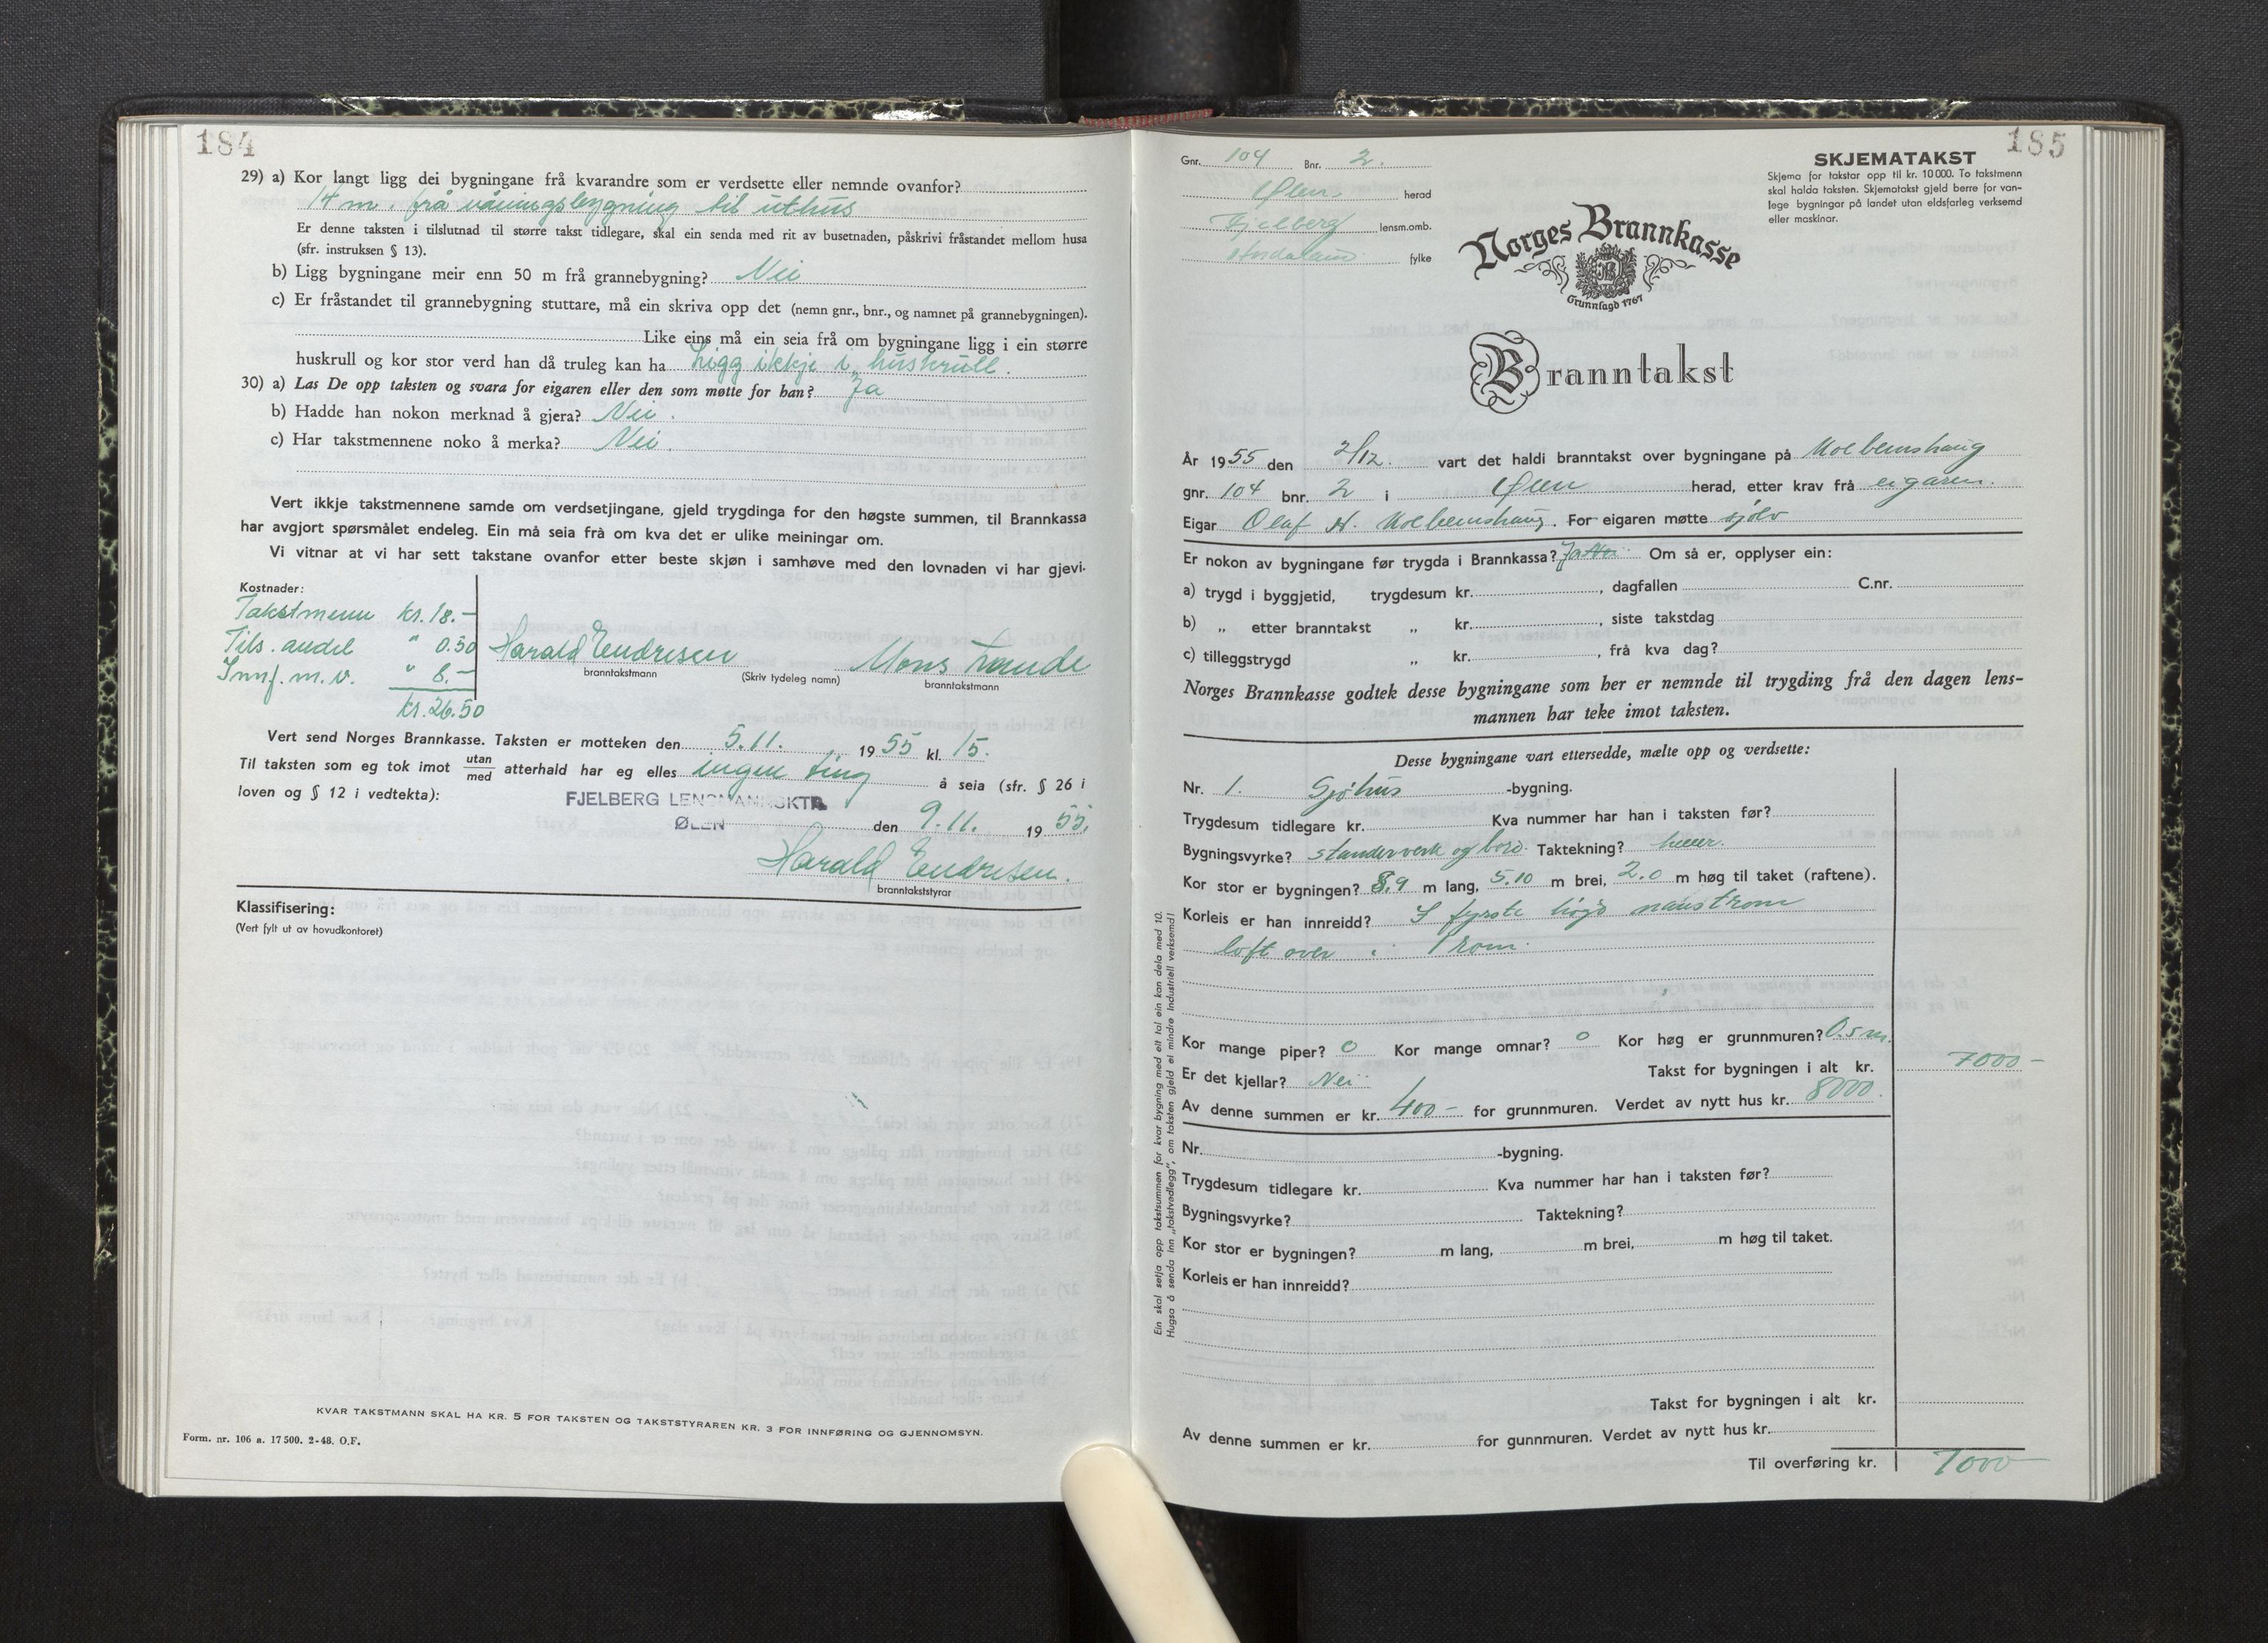 184
29) a) Kor langt ligg dei bygningane frå kvarandre som er verdsette eller nemnde ovanfor?
14 m. frå våningsbygning til uthus
Er denne taksten i tilslutnad til større takst tidlegare, skal ein senda med rit av busetnaden, påskrivi fråstandet mellom husa
(sfr. instruksen § 13).
b) Ligg bygningane meir enn 50 m frå grannebygning? Nei
c) Er fråstandet til grannebygning stuttare, må ein skriva opp det (nemn gnr., bnr., og namnet på grannebygningen).
Like eins må ein seia frå om bygningane ligg i ein større
huskrull og kor stor verd han då truleg kan ha Ligg ikkje i huskrull.
30) a) Las De opp taksten og svara for eigaren eller den som møtte for han? Ja
b) Hadde han nokon merknad å gjera? Nei.
c) Har takstmennene noko å merka? Nei.
Vert ikkje takstmennene samde om verdsetjingane, gjeld trygdinga for den høgste summen, til Brannkassa
har avgjort spørsmålet endeleg. Ein må seia frå om kva det er ulike meiningar om.
Vi vitnar at vi har sett takstane ovanfor etter beste skjøn i samhøve med den lovnaden vi har gjevi.
Kostnader:
Takstmenn kr. 18.-
Tils. andel " 0.50
Innf. m. v. " 8.-
kr. 26.50
Harald Endresen Mons Lunde
branntakstmann (Skriv tydeleg namn) branntakstmann
Vert send Norges Brannkasse. Taksten er motteken den 5.11. 1955 kl. 15.
Til taksten som eg tok imot utan/med atterhald har eg elles ingen ting å seia (sfr. § 26 i
loven og § 12 i vedtekta):
FJELBERG LENSMANNSKTR.
ØLEN den 9.11. 1955.
Harald Endresen.
branntakststyrar
Klassifisering:
(Vert fylt ut av hovudkontoret)
KVAR TAKSTMANN SKAL HA KR. 5 FOR TAKSTEN OG TAKSTSTYRAREN KR. 3 FOR INNFØRING OG GJENNOMSYN.
Form. nr. 106 a. 17500. 2-48. O.F.
185
Gnr. 104 Bnr. 2.
Ølen herad
Fjelberg lensm.omb.
Hordaland fylke
SKJEMATAKST
Skjema for takstar opp til kr. 10 000. To takstmenn
skal halda taksten. Skjematakst gjeld berre for van-
lege bygningar på landet utan eldsfarleg verksemd
eller maskinar.
Norges Brannkasse
Grunnlagd 1767
Branntakst
År 1955 den 2/12. vart det haldi branntakst over bygningane på Kolbeinshaug
gnr. 104 bnr. 2 i Ølen herad, etter krav frå eigaren.
Eigar Olaf H. Kolbeinshaug. For eigaren møtte sjølv
Er nokon av bygningane før trygda i Brannkassa? Ja Nei Om så er, opplyser ein:
a) trygd i byggjetid, trygdesum kr. , dagfallen C.nr.
b) „ etter branntakst „ kr. , siste takstdag
c) tilleggstrygd „ kr. , frå kva dag?
Norges Brannkasse godtek desse bygningane som her er nemnde til trygding frå den dagen lens-
mannen har teke imot taksten.
Desse bygningane vart ettersedde, mælte opp og verdsette:
Nr. 1. Sjøhus -bygning.
Trygdesum tidlegare kr. Kva nummer har han i taksten før?
Bygningsvyrke? standerverk og bord. Taktekning? heller.
Kor stor er bygningen? 8.9 m lang, 5.10 m brei, 2.0 m høg til taket (raftene).
Korleis er han innreidd? I fyrste høgd naustrom
loft over : 1 rom.
Kor mange piper? 0 Kor mange omnar? 0 Kor høg er grunnmuren? 0.5 m.
Er det kjellar? Nei Takst for bygningen i alt kr. 7000-
Av denne summen er kr. 400- for grunnmuren. Verdet av nytt hus kr. 8000.
Nr. -bygning.
Trygdesum tidlegare kr. Kva nummer har han i taksten før?
Bygningsvyrke? Taktekning?
Kor stor er bygningen? m lang, m brei, m høg til taket.
Korleis er han innreidd?
Takst for bygningen i alt kr.
Av denne summen er kr. for gunnmuren. Verdet av nytt hus kr.
Til overføring kr. 7000-
Ein skal setja opp takstsummen for kvar bygning med eit tal ein kan dela med 10.
Hugsa å senda inn „takstvedlegg", om taksten gjeld ei mindre industriell verksemd!